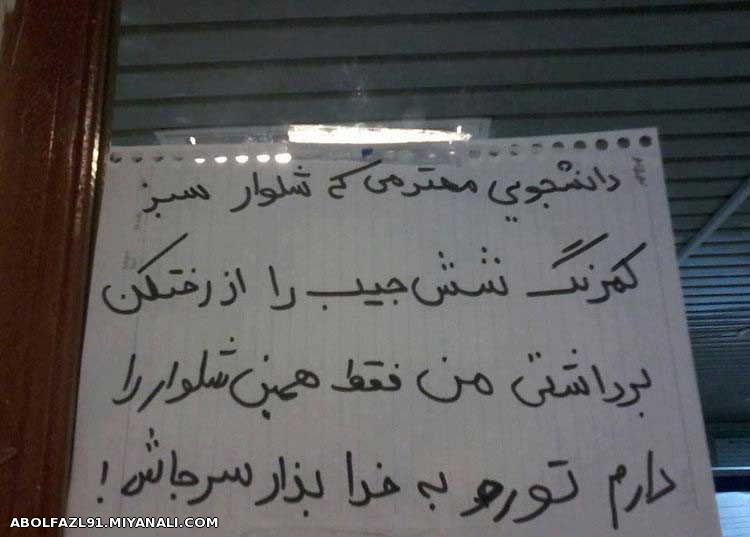 دانشجویی محترمی که شلوار سبز
کمرنگ شش جیب را از رختکن
برداشتی من فقط همین شلوار را
دارم تورو به خدا بذار سرجاش!
ABOLFAZL91.MIYANALI.COM